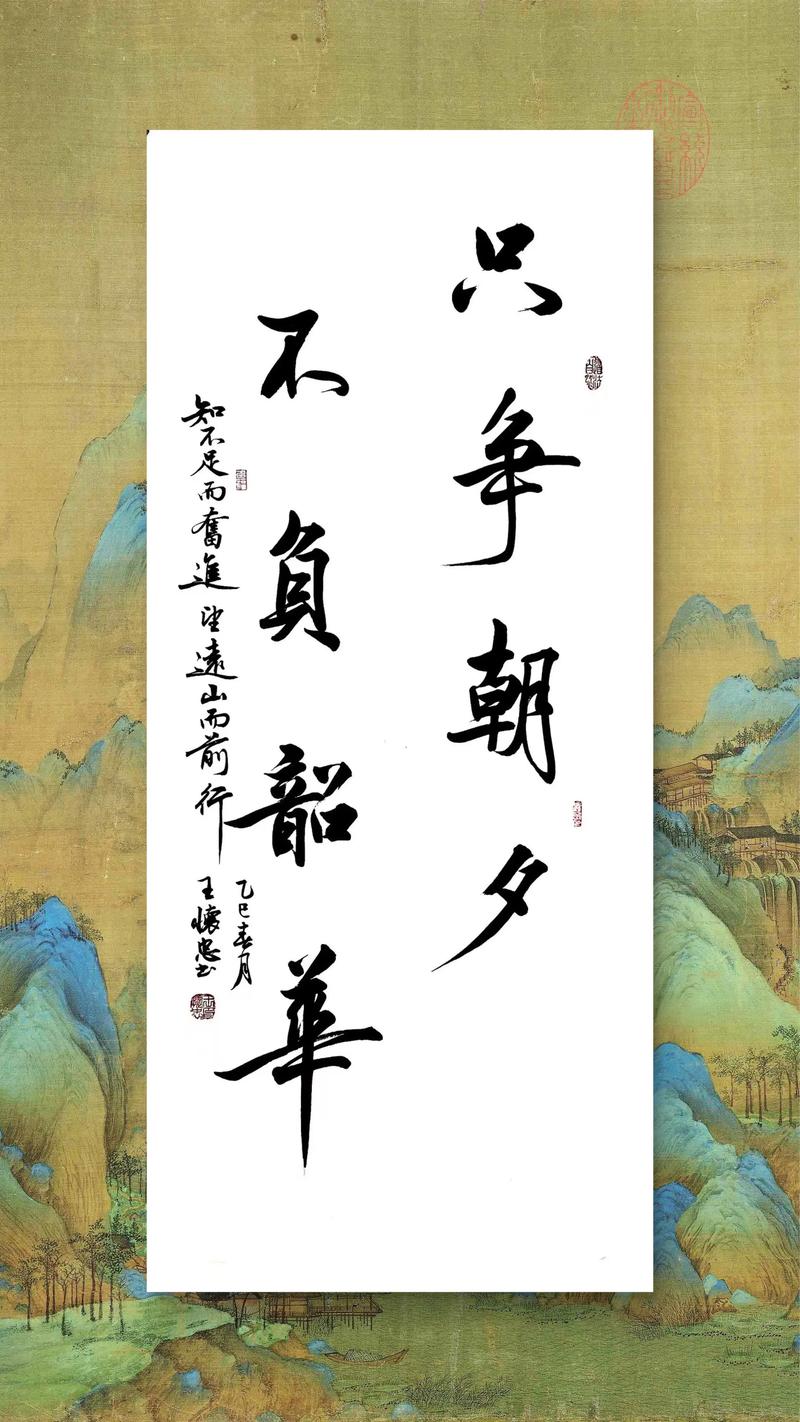 只争朝夕
不負韶華
知不足而奮進望遠山而前行
乙巳春月
王懷忠书